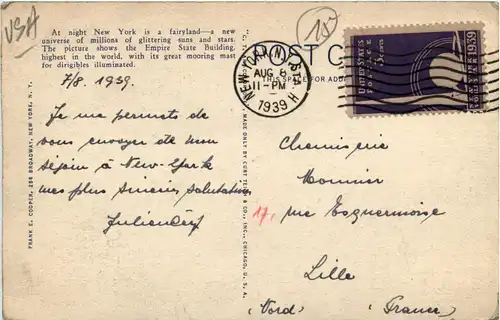 USA
150
At night New York is a fairyland—a new
universe of millions of glittering suns and stars.
The picture shows the Empire State Building,
highest in the world, with its great mooring mast
for dirigibles illuminated.
7/8. 1939.
Je me permets de
vous envoyer de mon
séjour à New-York
mes plus sincères salutations
FRANK E. COOPER, 256 BROADWAY, NEW YORK, N. Y.
MADE ONLY BY CURT TEICH & CO., INC., CHICAGO, U. S. A.
POST C
THIS SPACE FOR ADD
NEW YORK, N.Y.
AUG 8
11-PM
1939
UNITED STATES
POSTAGE
1939
Chemiserie
Monnier
17, rue Esquermoise
Lille
(Nord) (France)